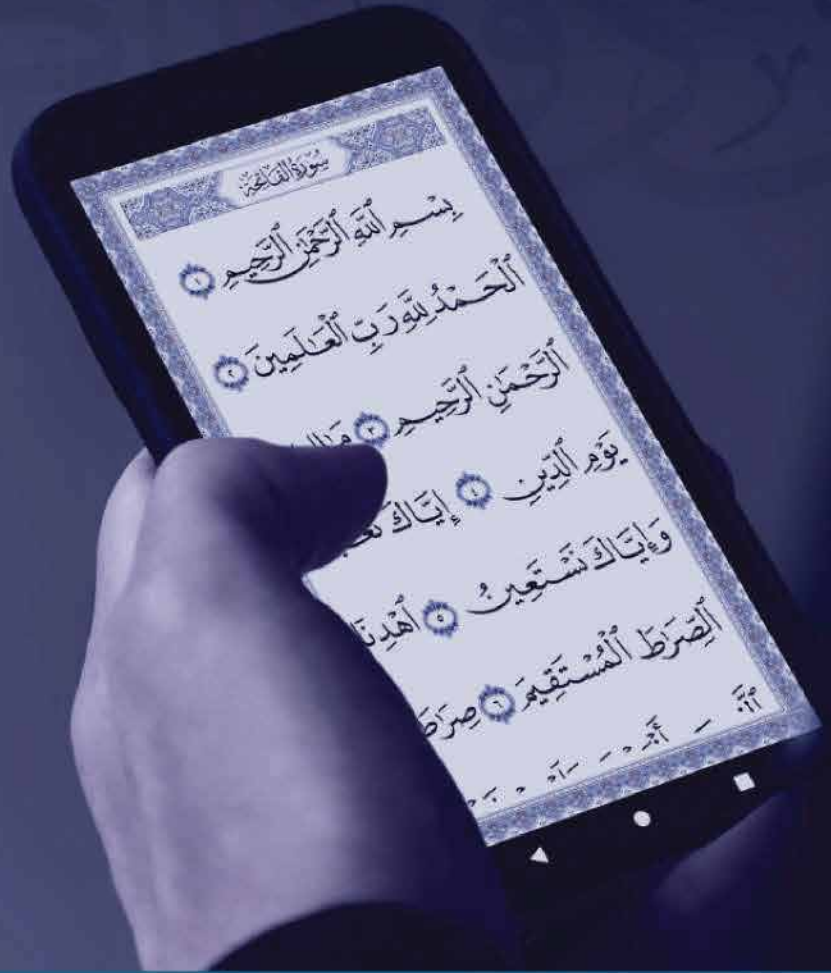 سُورَةُ الفَاتِحَةِ
بِسْمِ ٱللَّهِ ٱلرَّحْمَٰنِ ٱلرَّحِيمِ ١
ٱلْحَمْدُ لِلَّهِ رَبِّ ٱلْعَٰلَمِينَ ٢
ٱلرَّحْمَٰنِ ٱلرَّحِيمِ ٣
يَوْمِ ٱلدِّينِ ٤ إِيَّاكَ
وَإِيَّاكَ نَسْتَعِينُ ٥ ٱهْدِنَا
ٱلصِّرَٰطَ ٱلْمُسْتَقِيمَ ٦ صِرَٰطَ